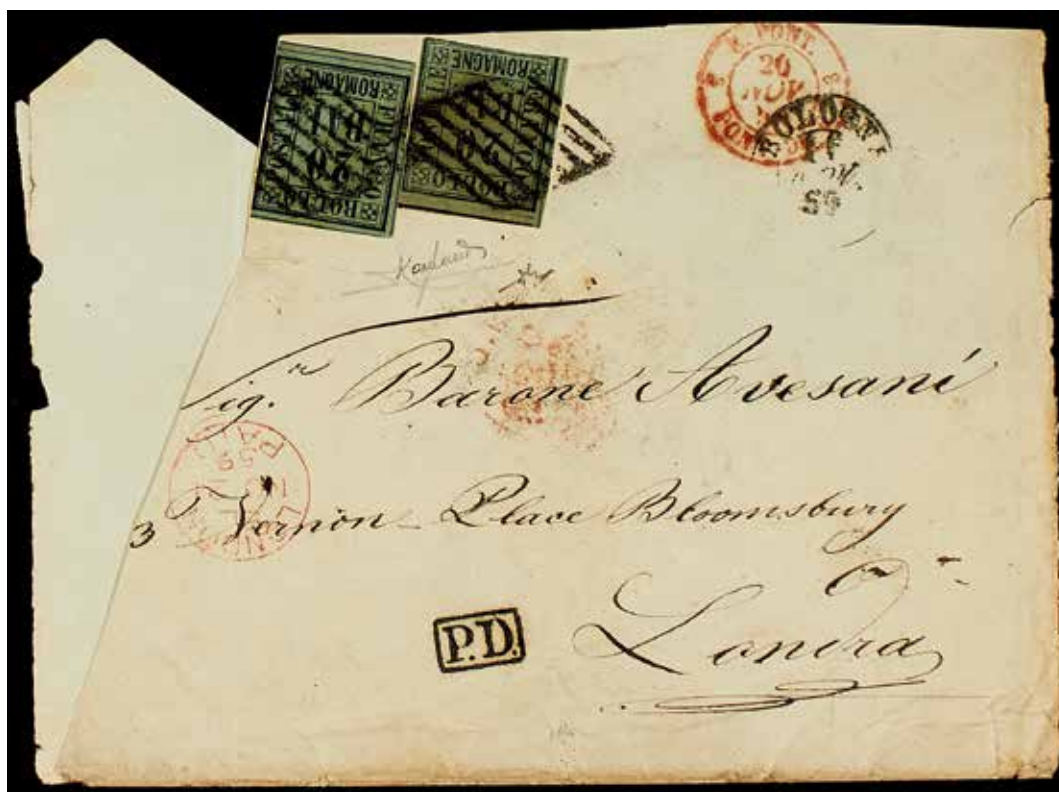 FRANCO
BOLLO
POSTALE
ROMAGNE
BAJ
20
FRANCO
BOLLO
POSTALE
ROMAGNE
BAJ
20
E. PONT.
20
NOV
PONT
BOLOGNA
11
59
Sig.r Barone Avesani
PAID
59
3 Vernon Place Bloomsbury
P.D.
Londra